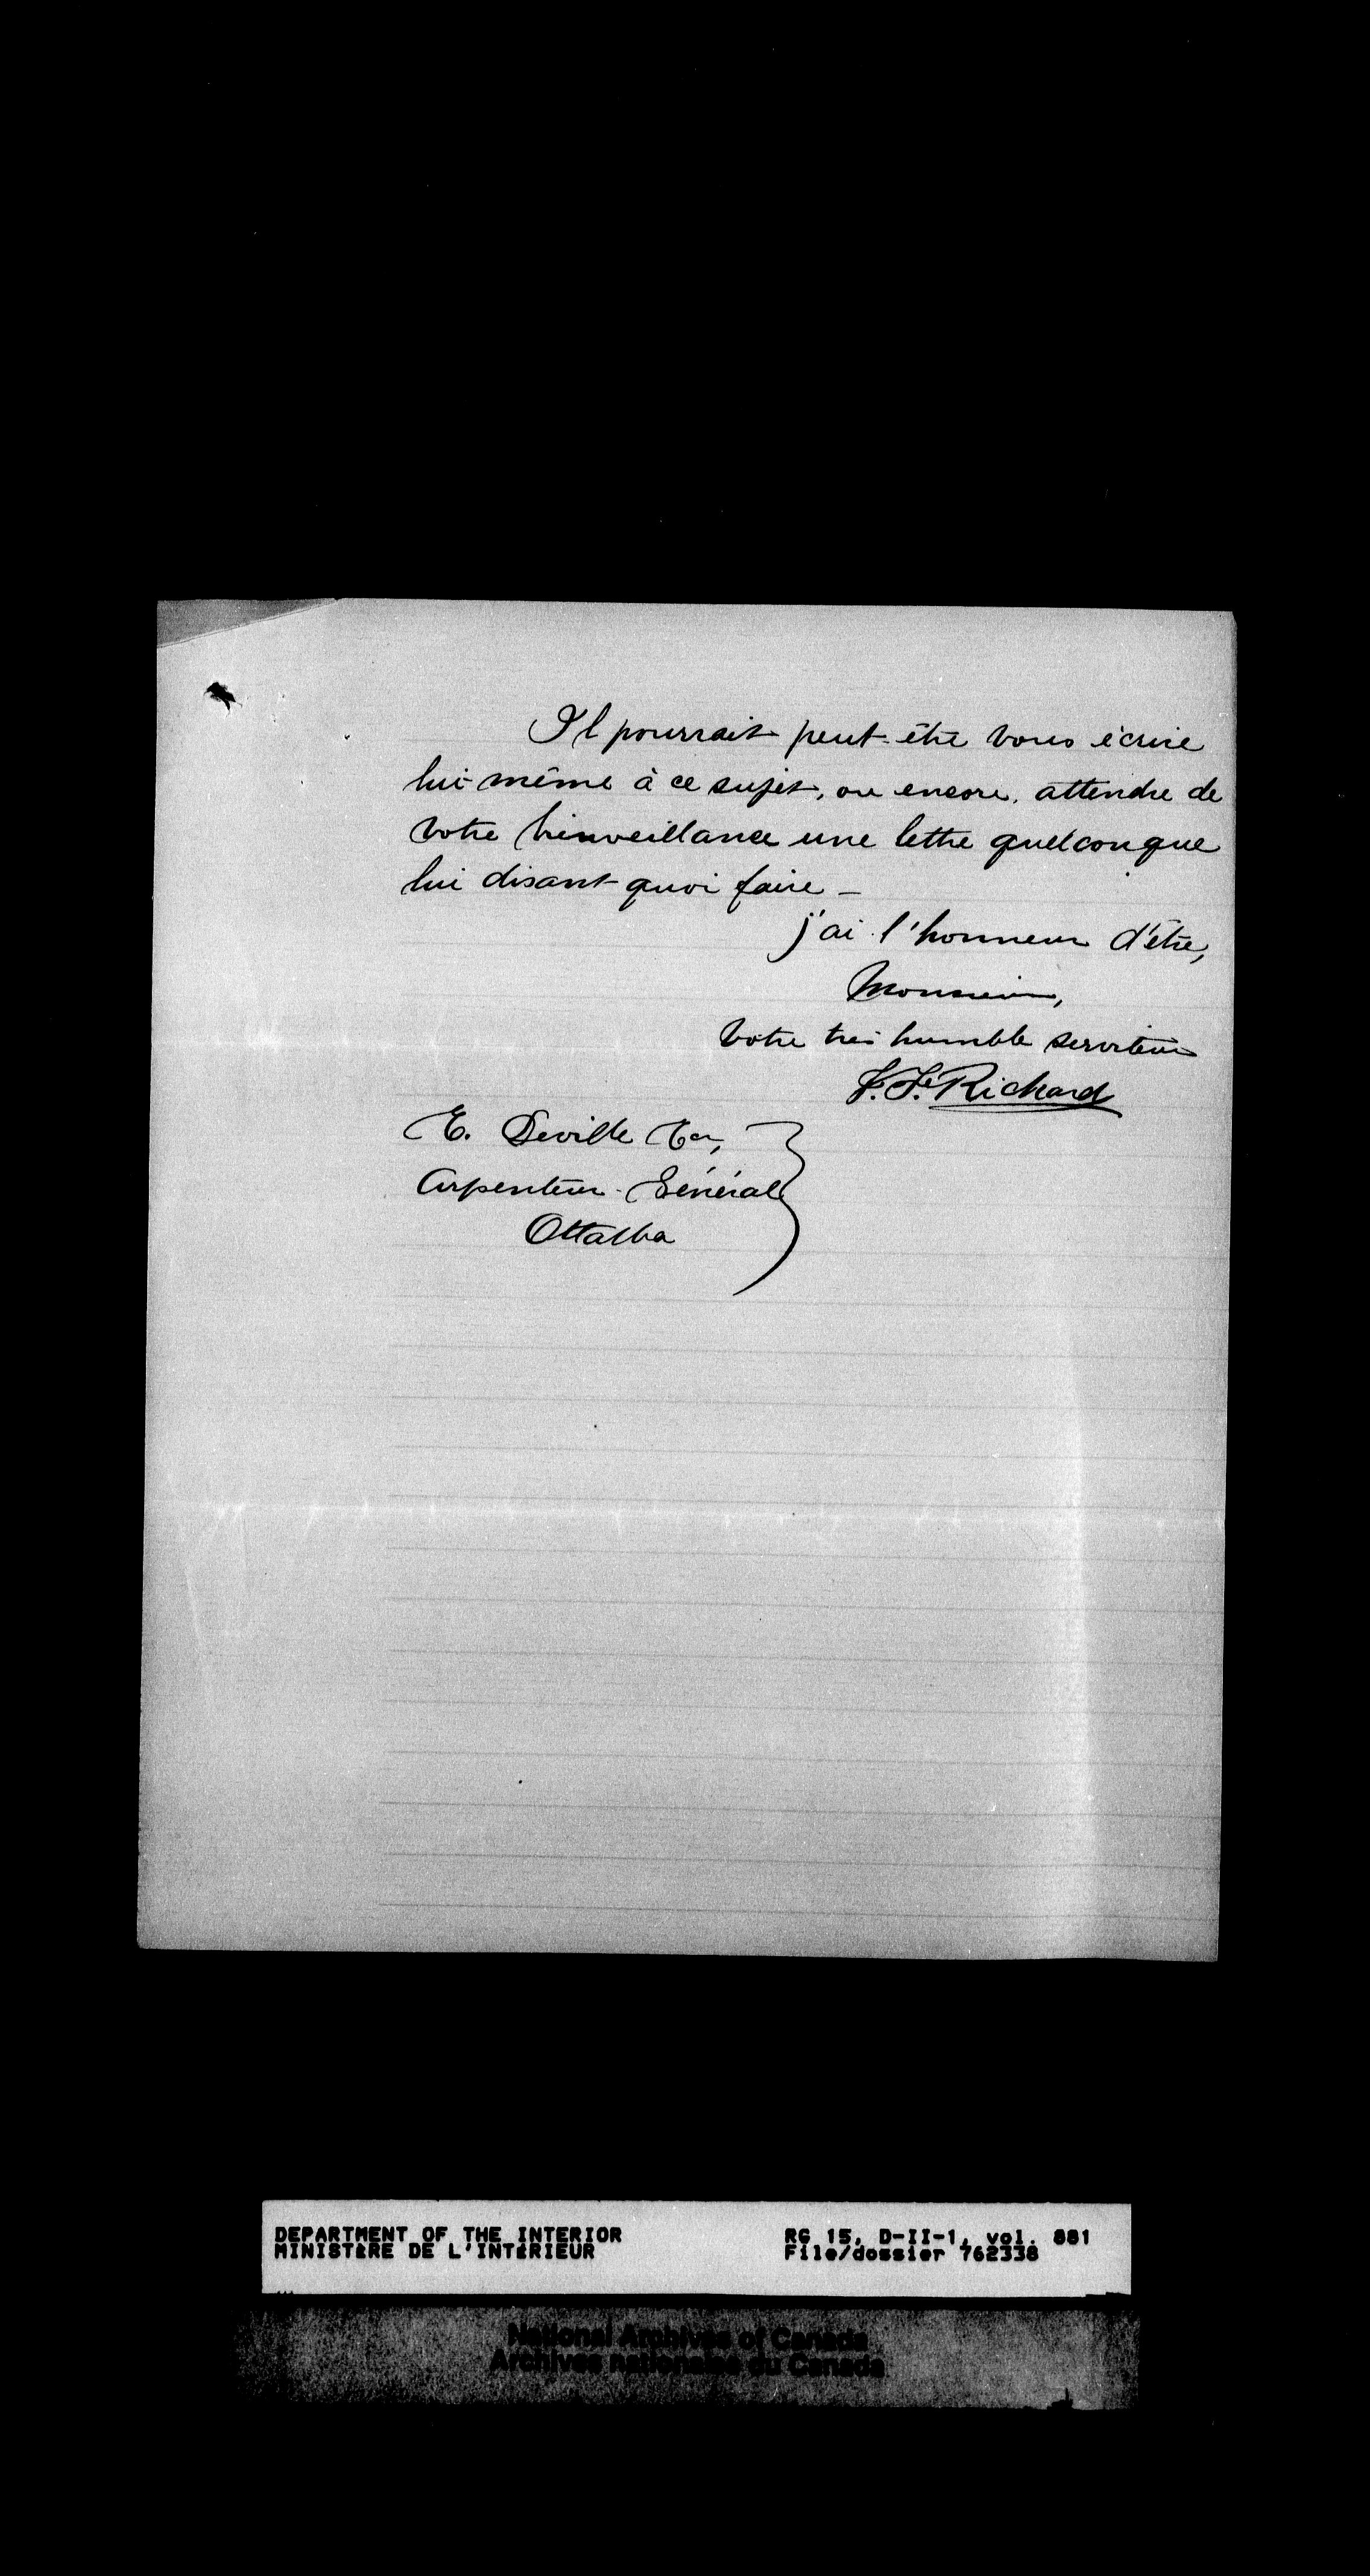 Il pourrait peut-être vous écrire
lui-même à ce sujet, ou encore, attendre de
votre bienveillance une lettre quelconque
lui disant quoi faire –
j'ai l'honneur d'être,
Monsieur,
Votre très humble serviteur
J. F. Richard
E. Deville Ecr,
Arpenteur-Général
Ottawa
DEPARTMENT OF THE INTERIOR
MINISTÈRE DE L'INTÉRIEUR
RG 15, D-II-1, vol. 881
File/dossier 762338
National Archives of Canada
Archives nationales du Canada